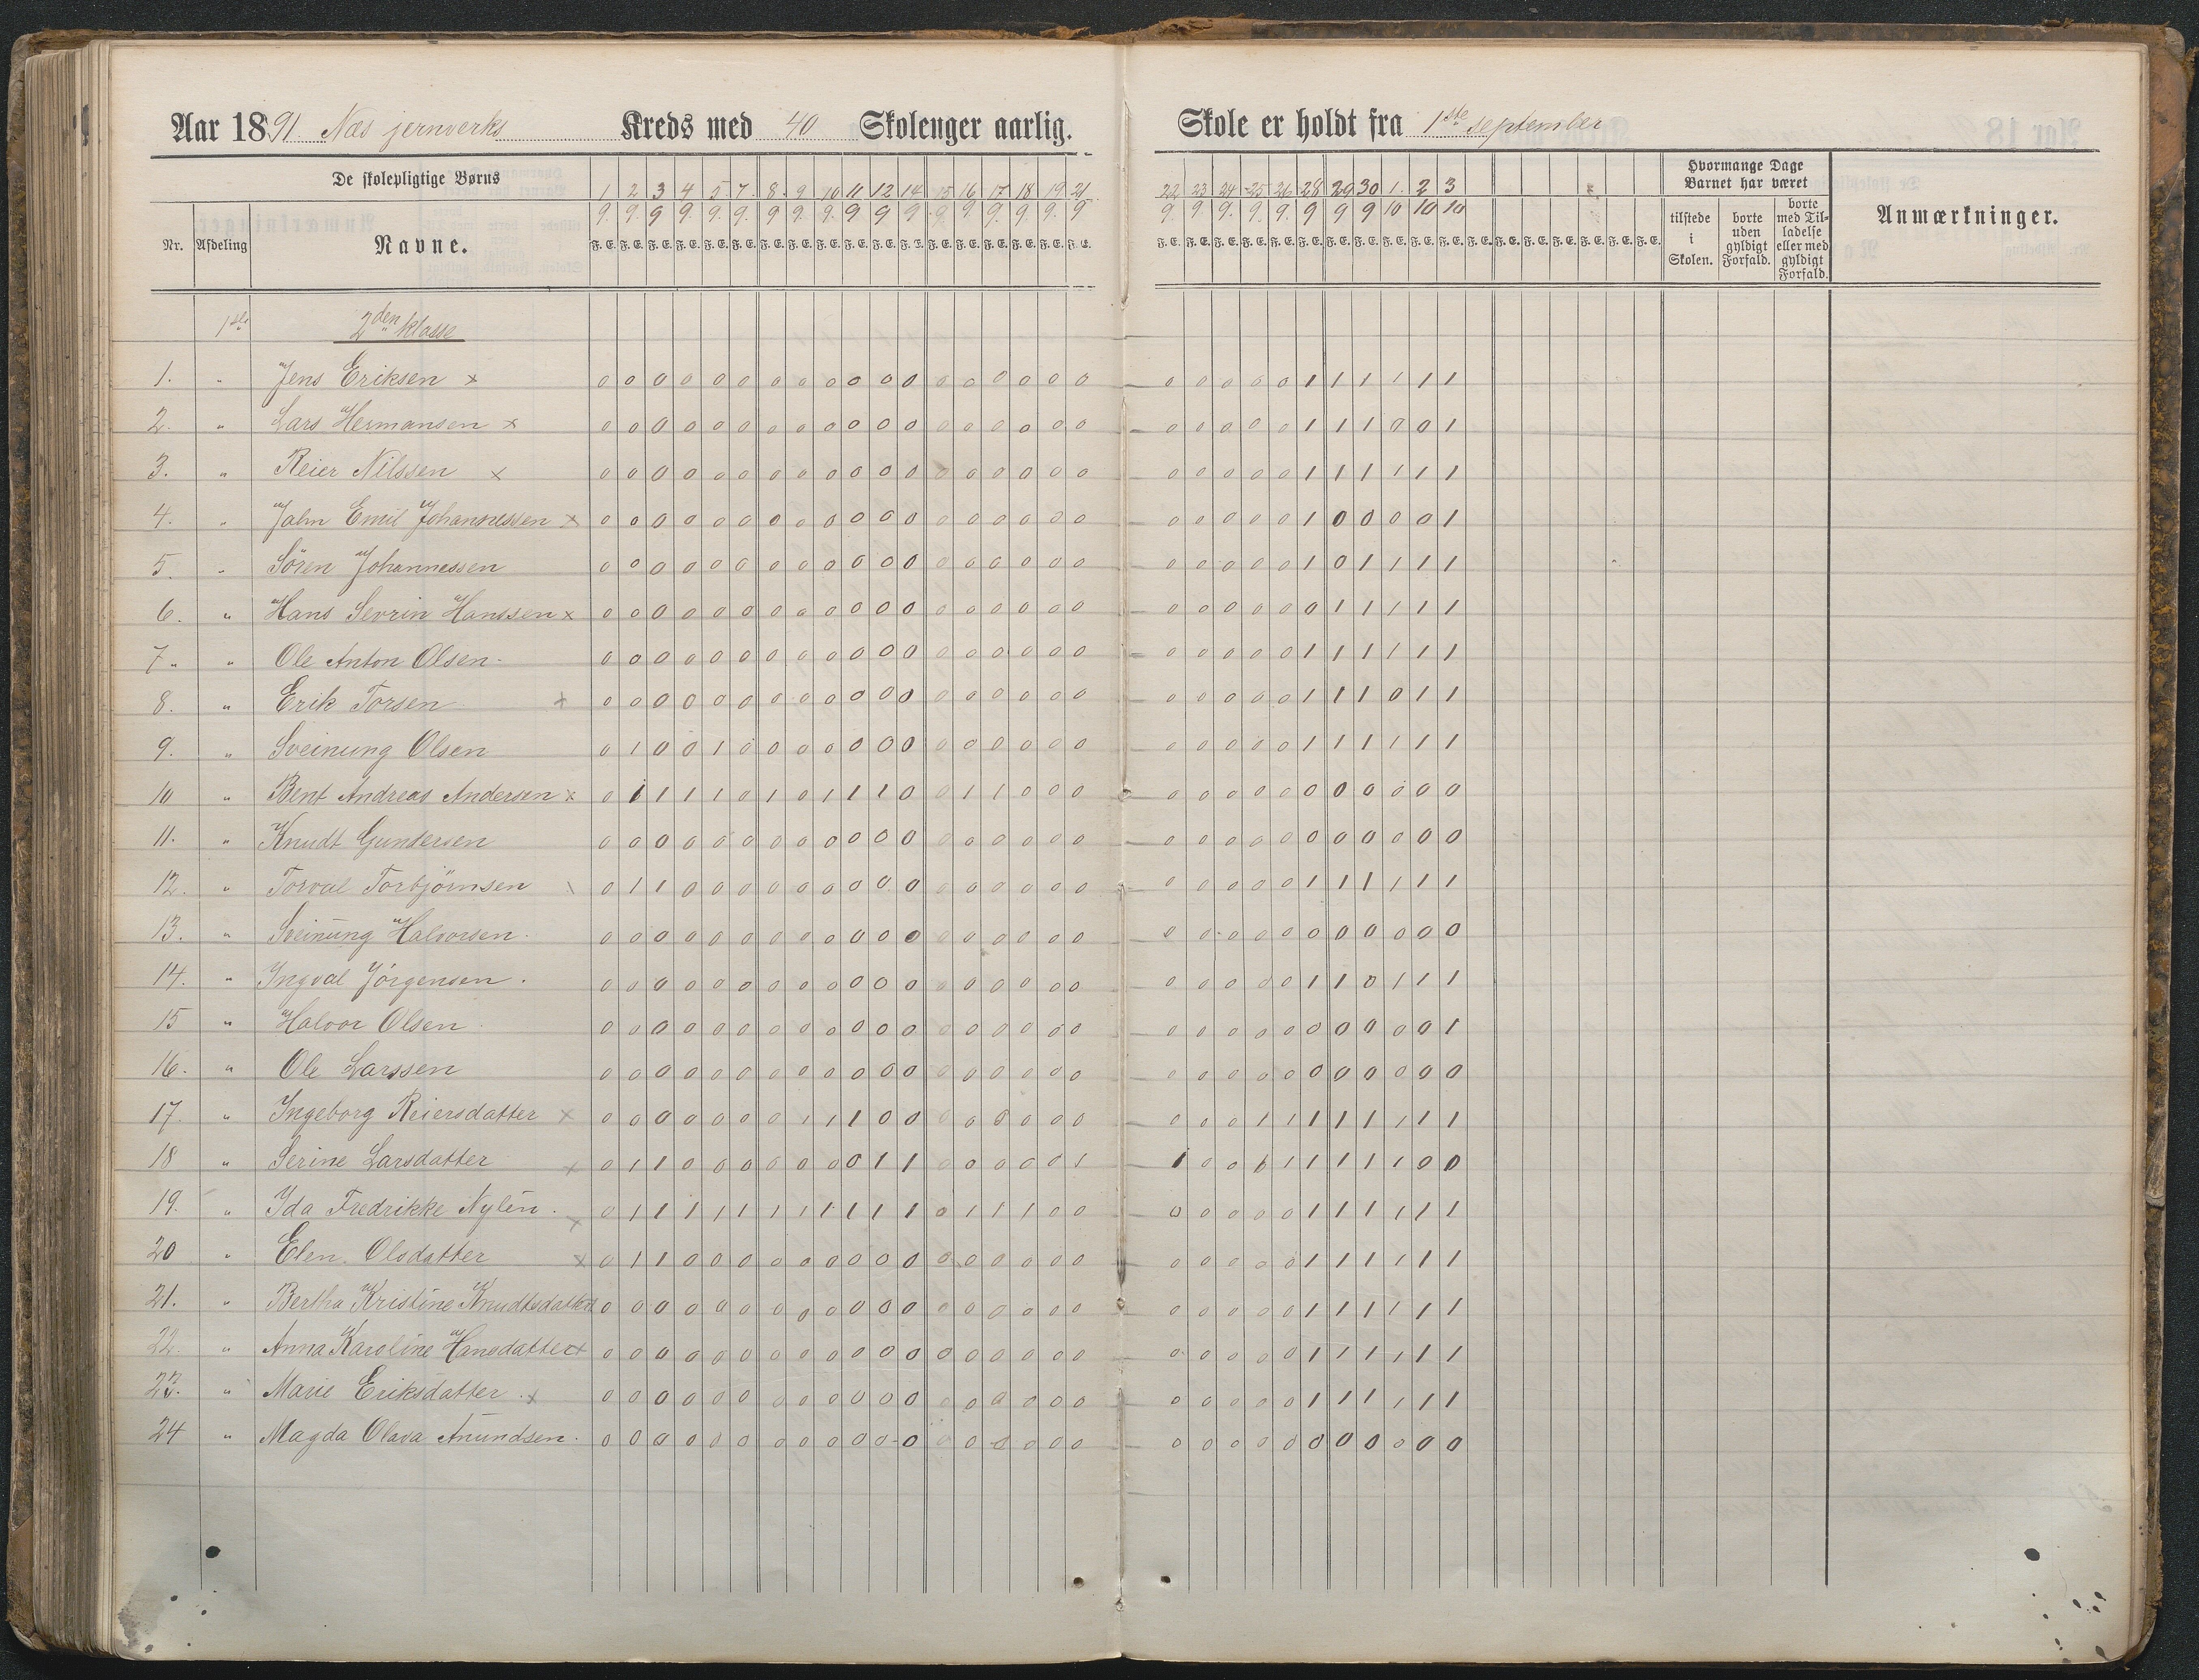 Aar 1891. Næs jernverks Kreds med 40 Skoleuger aarlig. Skole er holdt fra 1ste september
De skolepligtige Børns
Nr. Afdeling Navne.
1 2 3 4 5 7. 8. 9 10 11 12 14 15 16 17 18 19 21
9. 9. 9 9. 9. 9. 9 9. 9. 9 9 9 9. 9 9. 9. 9. 9
22 23 24 25 26 28 29 30 1. 2 3
9. 9 9. 9. 9. 9 9 9 10 10 10
F.E. F.E. F.E. F.E. F.E. F.E. F.E. F.E. F.E. F.E. F.E. F.E. F.E. F.E. F.E. F.E. F.E. F.E.
F.E. F.E. F.E. F.E. F.E. F.E. F.E. F.E. F.E. F.E. F.E. F.E. F.E. F.E. F.E. F.E. F.E. F.E.
Hvormange Dage
Barnet har været
tilstede i Skolen.
borte uden gyldigt Forfald.
borte med Tilladelse eller med gyldigt Forfald.
Anmærkninger.
1ste 2den klasse
1. " Jens Eriksen x 0 0 0 0 0 0 0 0 0 0 0 0 0 0 0 0 0 0 0 0 0 0 0 1 1 1 1 1 1
2. " Lars Hermansen x 0 0 0 0 0 0 0 0 0 0 0 0 0 0 0 0 0 0 0 0 0 0 0 1 1 1 0 0 1
3. " Reier Nilssen x 0 0 0 0 0 0 0 0 0 0 0 0 0 0 0 0 0 0 0 0 0 0 0 1 1 1 1 1 1
4. " Jahn Emil Johannessen x 0 0 0 0 0 0 0 0 0 0 0 0 0 0 0 0 0 0 0 0 0 0 0 1 0 0 0 0 1
5. " Sören Johannessen 0 0 0 0 0 0 0 0 0 0 0 0 0 0 0 0 0 0 0 0 0 0 0 1 0 1 1 1 1
6. " Hans Sevrin Hanssen x 0 0 0 0 0 0 0 0 0 0 0 0 0 0 0 0 0 0 0 0 0 0 0 0 1 1 1 1 1
7. " Ole Anton Olsen. 0 0 0 0 0 0 0 0 0 0 0 0 0 0 0 0 0 0 0 0 0 0 0 1 1 1 1 1 1
8. " Erik Torsen x 0 0 0 0 0 0 0 0 0 0 0 0 0 0 0 0 0 0 0 0 0 0 0 1 1 1 0 1 1
9. " Sveinung Olsen 0 1 0 0 1 0 0 0 0 0 0 0 0 0 0 0 0 0 0 0 0 0 0 1 1 1 1 1 1
10 " Bent Andreas Andersen x 0 1 1 1 1 0 1 0 1 1 1 0 0 1 1 0 0 0 0 0 0 0 0 0 0 0 0 0 0
11. " Knudt Gundersen 0 0 0 0 0 0 0 0 0 0 0 0 0 0 0 0 0 0 0 0 0 0 0 0 0 0 0 0 0
12. " Torval Torbjörnsen \ 0 1 1 0 0 0 0 0 0 0 0 0 0 0 0 0 0 0 0 0 0 0 0 1 1 1 1 1 1
13. " Sveinung Halvorsen. 0 0 0 0 0 0 0 0 0 0 0 0 0 0 0 0 0 0 0 0 0 0 0 0 0 0 0 0 0
14. " Ingval Jörgensen. 0 0 0 0 0 0 0 0 0 0 0 0 0 0 0 0 0 0 0 0 0 0 0 1 1 0 1 1 1
15 " Halvor Olsen 0 0 0 0 0 0 0 0 0 0 0 0 0 0 0 0 0 0 0 0 0 0 0 0 0 0 0 0 1
16. " Ole Larssen 0 0 0 0 0 0 0 0 0 0 0 0 0 0 0 0 0 0 0 0 0 0 0 0 0 0 0 0 0
17. " Ingeborg Reiersdatter x 0 0 0 0 0 0 0 1 1 1 0 0 0 0 0 0 0 0 0 0 0 1 1 1 1 1 1 1 1
18 " Serine Larsdatter x 0 1 1 0 0 0 0 0 0 0 1 1 0 0 0 0 0 1 1 0 0 1 1 1 1 1 1 0 0
19. " Ida Fredrikke Nylén. x 0 1 1 1 1 1 1 1 1 1 1 1 0 1 1 1 0 0 0 0 0 0 0 1 1 1 1 1 1
20 " Elen Olsdatter x 0 1 1 0 0 0 0 0 0 0 0 0 0 0 0 0 0 0 0 0 0 0 0 1 1 1 1 1 1
21. " Bertha Kristine Knudtsdatter 0 0 0 0 0 0 0 0 0 0 0 0 0 0 0 0 0 0 0 0 0 0 0 1 1 1 1 1 1
22. " Anna Karoline Hansdatter x 0 0 0 0 0 0 0 0 0 0 0 0 0 0 0 0 0 0 0 0 0 0 0 1 1 1 1 1 1
23. " Marie Eriksdatter. x 0 0 0 0 0 0 0 0 0 0 0 0 0 0 0 0 0 0 0 0 0 0 0 1 1 1 1 1 1
24 " Magda Olava Anundsen. 0 0 0 0 0 0 0 0 0 0 0 0 0 0 0 0 0 0 0 0 0 0 0 0 0 0 0 0 0